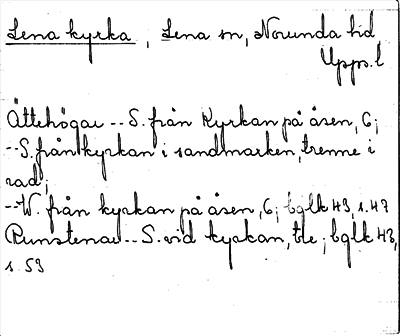 Lena kyrka, Lena sn, Norunda hd
Upps. l
Ättehögar -- S. från Kyrkan på åsen, 6;
--S. från kyrkan i sandmarken, trenne i
rad;
--W. från kyrkan på åsen, 6; bglk 43, s. 47
Runstenar -- S. vid kyrkan, tre; bglk 43,
s. 59